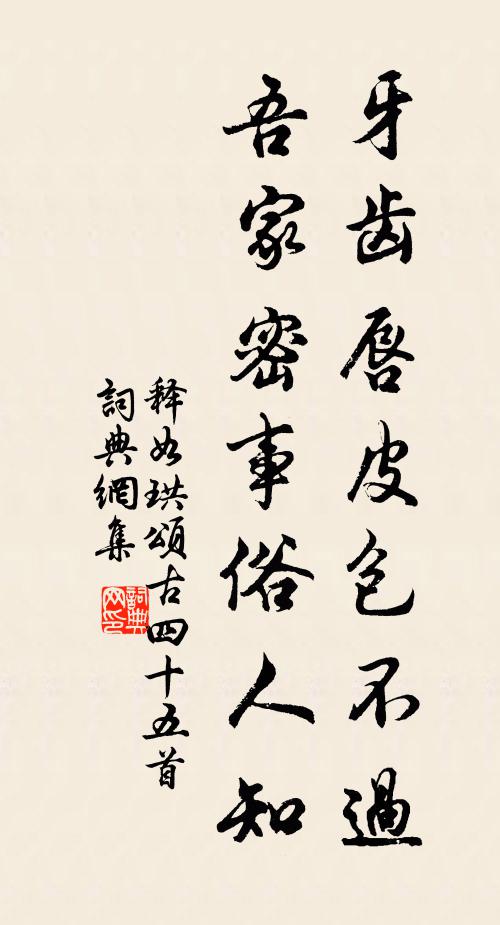 牙齿唇皮包不過
吾家密事俗人知
释如珙頌古四十五首
詞典網集
詞典网印